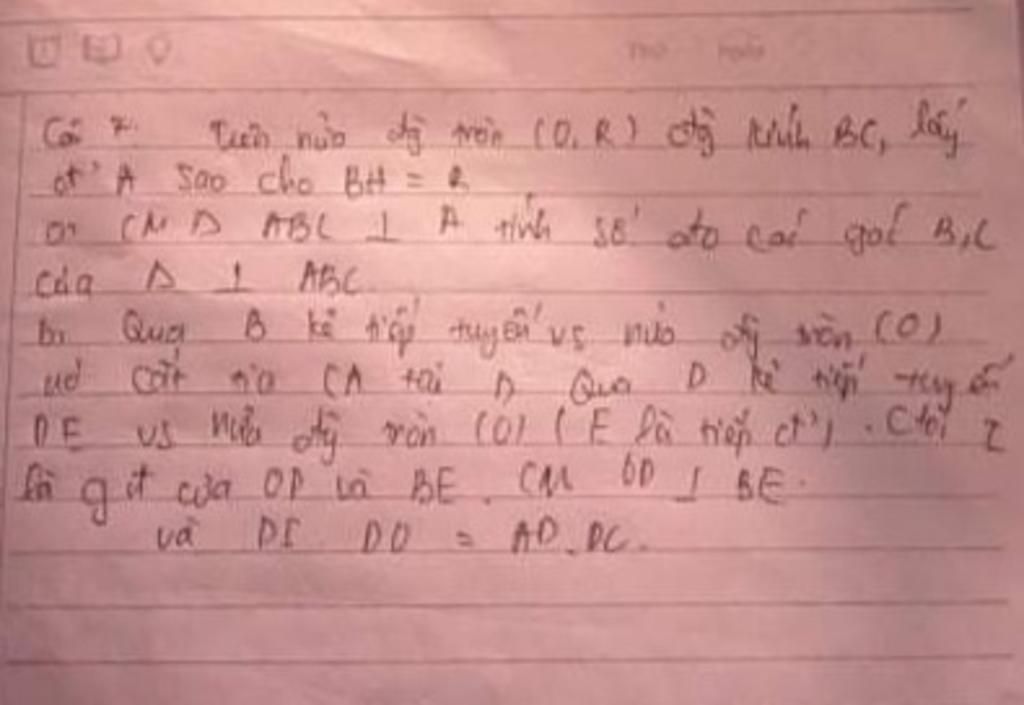 Câu 7: Trên nửa đg tròn (O, R) đg kính BC, lấy
đt' A sao cho BA = R
a, CM Δ ABC ⊥ A tính số đo các góc B, C
của Δ ⊥ ABC
b, Qua B kẻ tiếp tuyến vs nửa đg tròn (O)
nó cắt tia CA tại D Qua D kẻ tiếp tuyến
DE vs nửa đg tròn (O) (E là tiếp đ') . Gọi I
là g đ của OD và BE. CM OD ⊥ BE.
và DI DO = AD.DC.